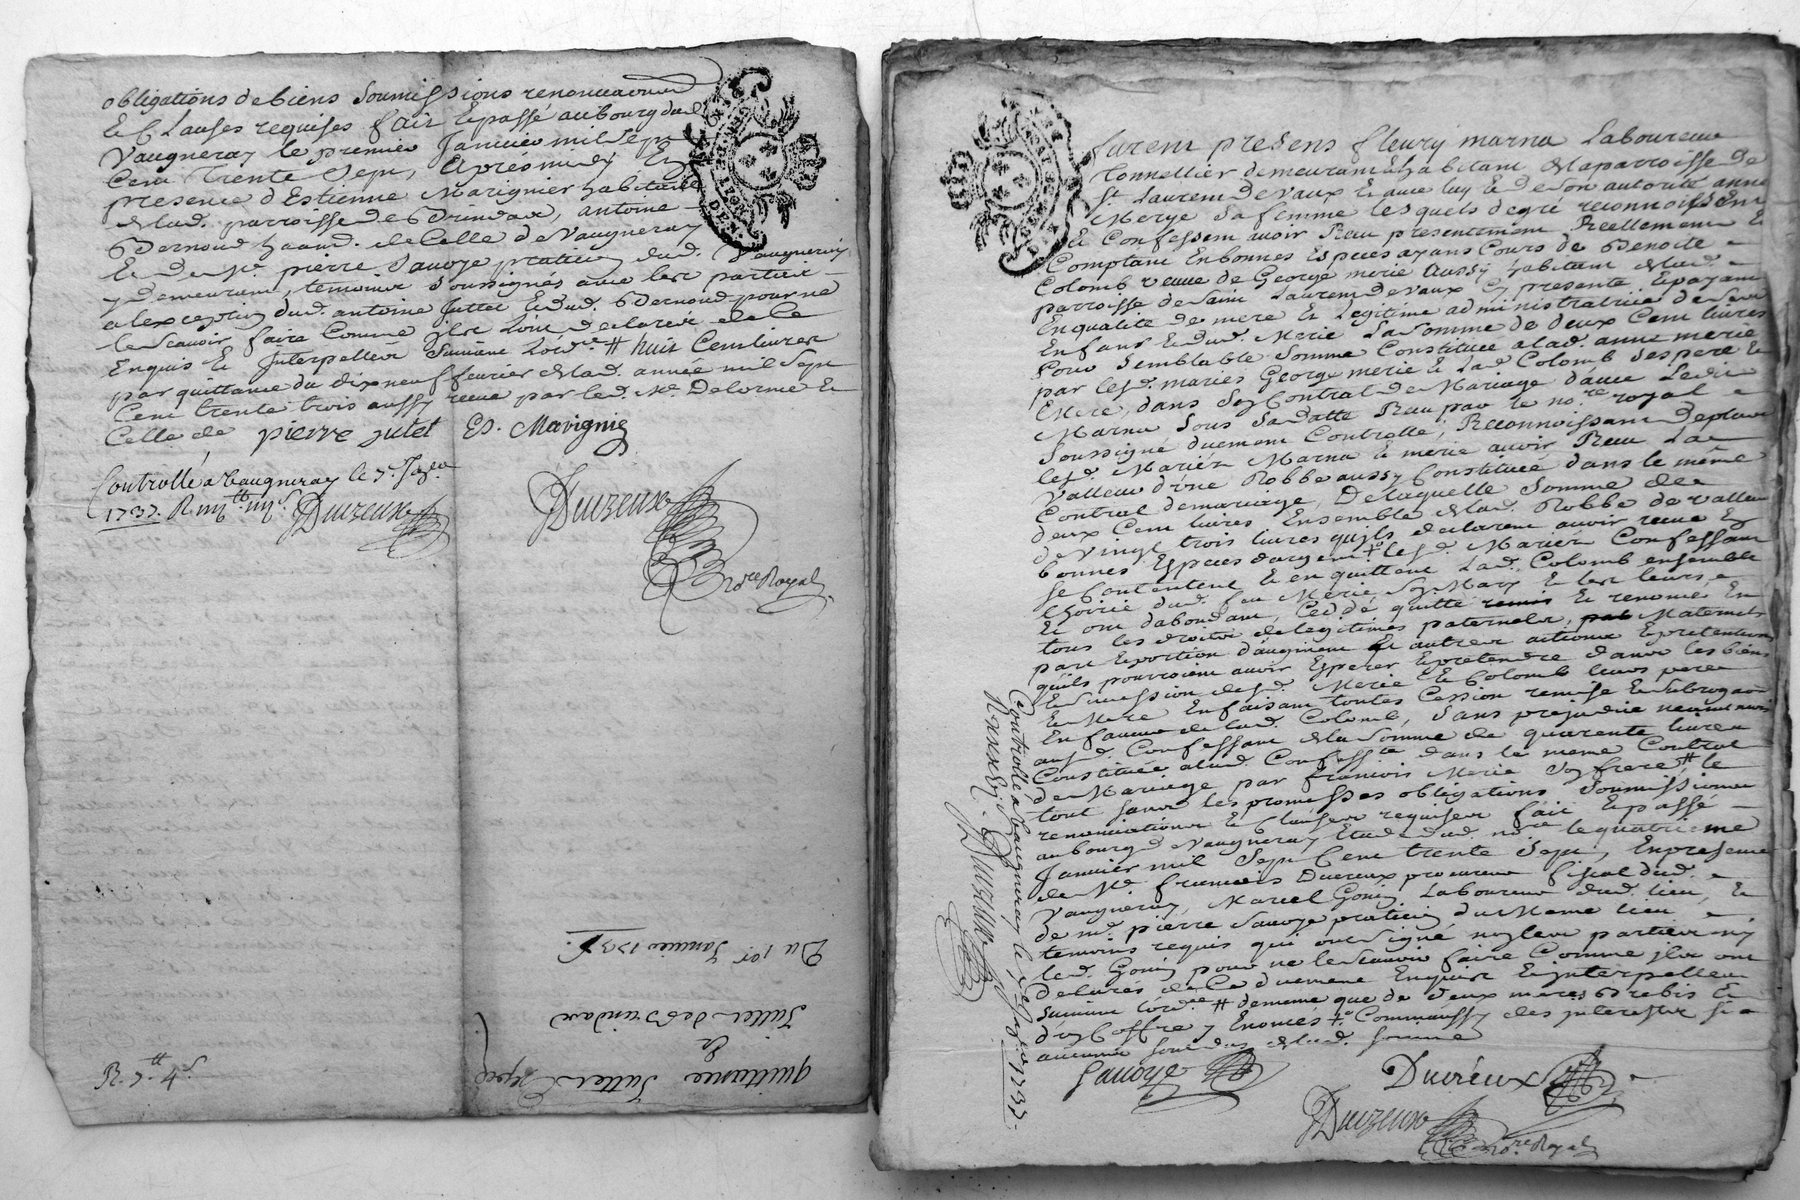 obligations de biens Soumissions renonciaōns
Et Clauses requises fait Et passé au bourg dud.
Vaugneray le premier Janvier mil Sept
Cent trente Sept, Aprés midy En
presence d'Estienne Marignier habitant
de lad. parroisse de Brindax, antoine
Bernoud de Celle de Vaugneray
Et de Mr. pierre Sauoye praticien dud. Vaugneray
y demeurant, temoins Soussignés avec les parties
a l'exception dud. antoine Juttet Et dud. Bernoud pour ne
le Scavoir faire Comme ils l'ont declaré de Ce
Enquis Et Interpellés Suivant L'ord.ce # huit Cent livres
par quittance du dix neuf feurier de lad. année mil Sept
Cent trente trois aussy receue par led. Me. Delorme Et
Celle de pierre jutet E. Marignie
Controllé a Vaugneray le 7e. Janer
1737. R
JDucreux JDucreux
nore Royal
Du 1er Janvier 1737.
Juttet de Brindax
quittance Juttet
R. 7. 4s.
furent presens fleury marna Laboureur
tonnellier demeurant & habitant de la parroisse de
St. Laurent de Vaux Et avec luy Et de Son autorité anne
Merye Sa femme lesquels de gré reconnoissent
Et Confessent avoir Reçu presentement Reellement Et
Comptant En bonnes Especes ayans Cours de Benoite
Colomb veuve de George merie aussy habitant de lad.
parroisse de Saint Laurent de Vaux Cy presente Et payant
En qualité de mere Et Legitime administratrice de Ses
Enfans Et dud. Merie La Somme de deux Cent livres
pour Semblable Somme Constituée a lad. anne merie
par lesd. mariés George merie Et Lad. Colomb Ses pere Et
Mere, dans Son Contrat de Mariage d'avec Ledit
Marna Sous Sa datte Reçu par le no.re royal
Soussigné duement Controllé; Reconnoissent de plus
lesd. Mariés Marna Et merie avoir Reçu La
Valleur d'une Robbe aussy Constituée dans le même
Contrat de mariage, De laquelle Somme de
deux Cent livres Ensemble de lad. Robbe de valleur
de vingt trois livres qu'ils declarent avoir receue En
bonnes Especes d'argent + lesd. Mariés Confessans
Se Contentent Et en quittent Lad. Colomb ensemble
L'hoirie dud. feu Merie Son Mary Et les leurs
Et ont d'abondant, Ceddé quitté remis Et renoncé En
tous les droits de legitimes paternels, Maternels
part Et portion d'augment Et autres actions Et pretentions
qu'ils pourroient avoir Esperer Et pretendre dans les biens
Et Succession desd. Merie Et Colomb leurs pere
Et Mere En faisant toutes Cession remise Et Subrogaōn
En faveur de lad. Colomb, Sans prejudice neantmoins
ausd. Confessans de la Somme de quarente livres
Constituée alad. Confess.te dans le meme Contrat
de Mariage par francois Merie Son frere # le
tout Sous les promesses obligations Soumissions
renonciations Et Clauses requises fait Et passé
au bourg de Vaugneray Etude dud. no.re le quatrieme
Janvier mil Sept Cent trente Sept, En presence
de Me. francois Ducreux procureur fiscal dud.
Vaugneray, Marcel Gonin Laboureur dud. lieu, Et
de mr. pierre Sauoye praticien du Meme lieu
temoins requis qui ont Signé non les parties ny
led. Gonin pour ne le Scavoir faire Comme ils ont
declarés de Ce duement Enquis Et interpellés
Suivant l'ord.ce # de meme que de deux meres Brebis Et
d'un Coffre y Enoncés + Comm'aussy des interests Si
aucuns Sont dus de lad. Somme
Sauoye Ducreux
JDucreux
no.re Royal
Controllé a Vaugneray le Jan. 1737.
JDucreux